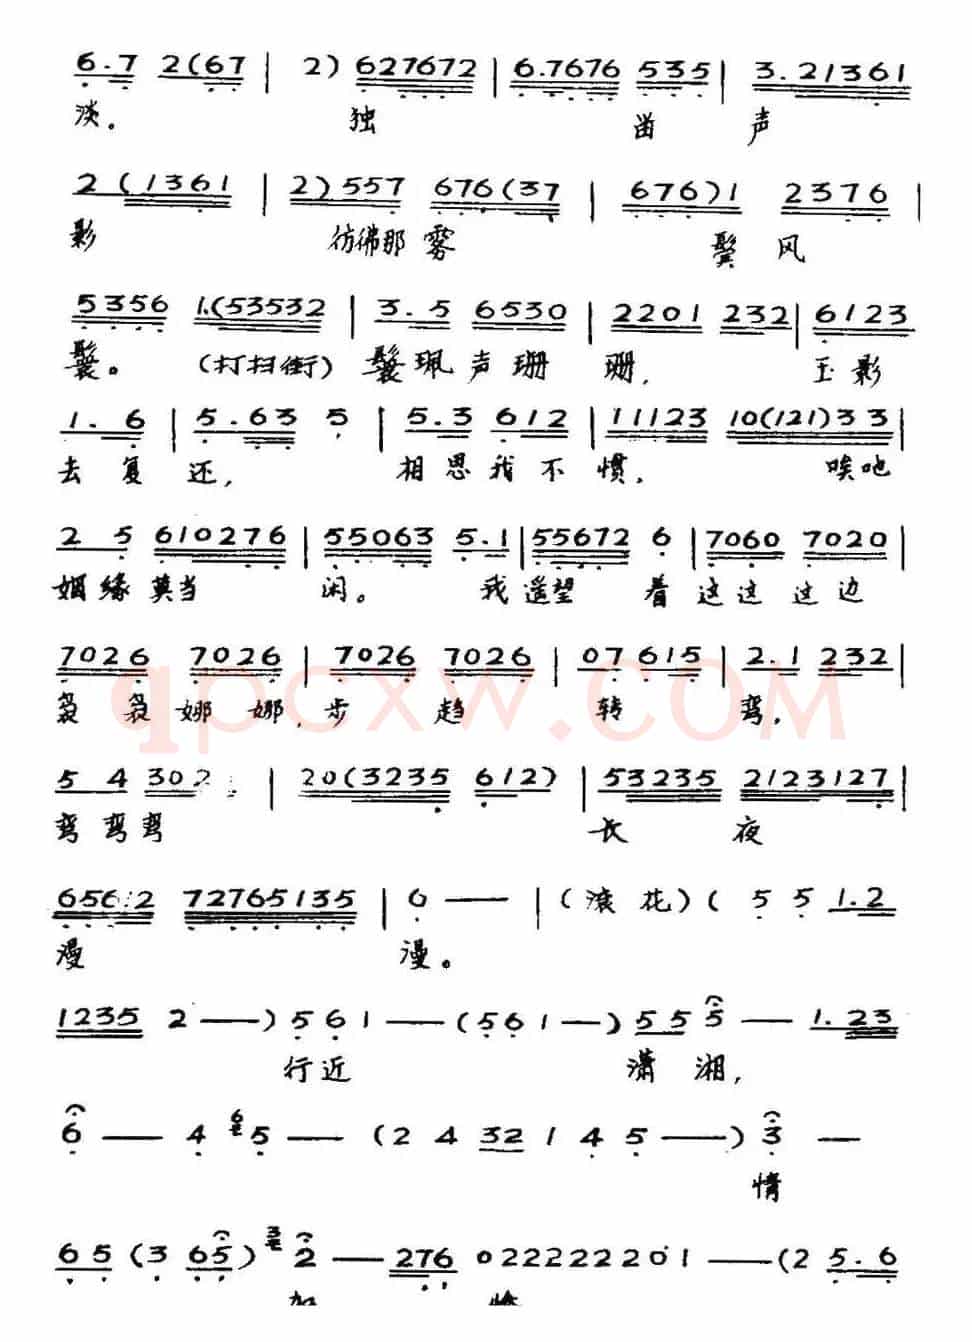 6.7 2(67 | 2) 627672 | 6.7676 535 | 3.21361
淡。 独 留 声
2 (1361 | 2) 557 676(37 | 676)1 2376 |
影 仿彿那雾 鬓风
5356 1.(53532 | 3.5 6530 | 2201 232 | 6123
鬟。 (打扫街) 鬟珮声珊 珊, 玉影
1. 6 | 5.63 5 | 5.3 612 | 11123 10(121)33 |
去复还, 相思我不惯, 唉吔
2 5 610276 | 55063 5.1 | 55672 6 | 7060 7020 |
姻缘莫当 闲。 我遥望 着这这这边
7026 7026 | 7026 7026 | 07615 | 2.1 232 |
袅袅娜娜,步趋 转 弯。
5 4 302 | 20(3235 612) | 53235 2123127 |
弯弯弯 长 夜
65612 72765135 | 6 — | (滚花) ( 5 5 1.2
漫 漫。
1235 2 —) 5 6 1 — (5 6 1 —) 55 5 — 1.23
行近 潇湘,
6 — 4 6 5 — (2 4 32 1 4 5 —) 3 —
情
65 (3 65) 3 2 — 276 022222201 — (2 5.6
qpcxw.COM